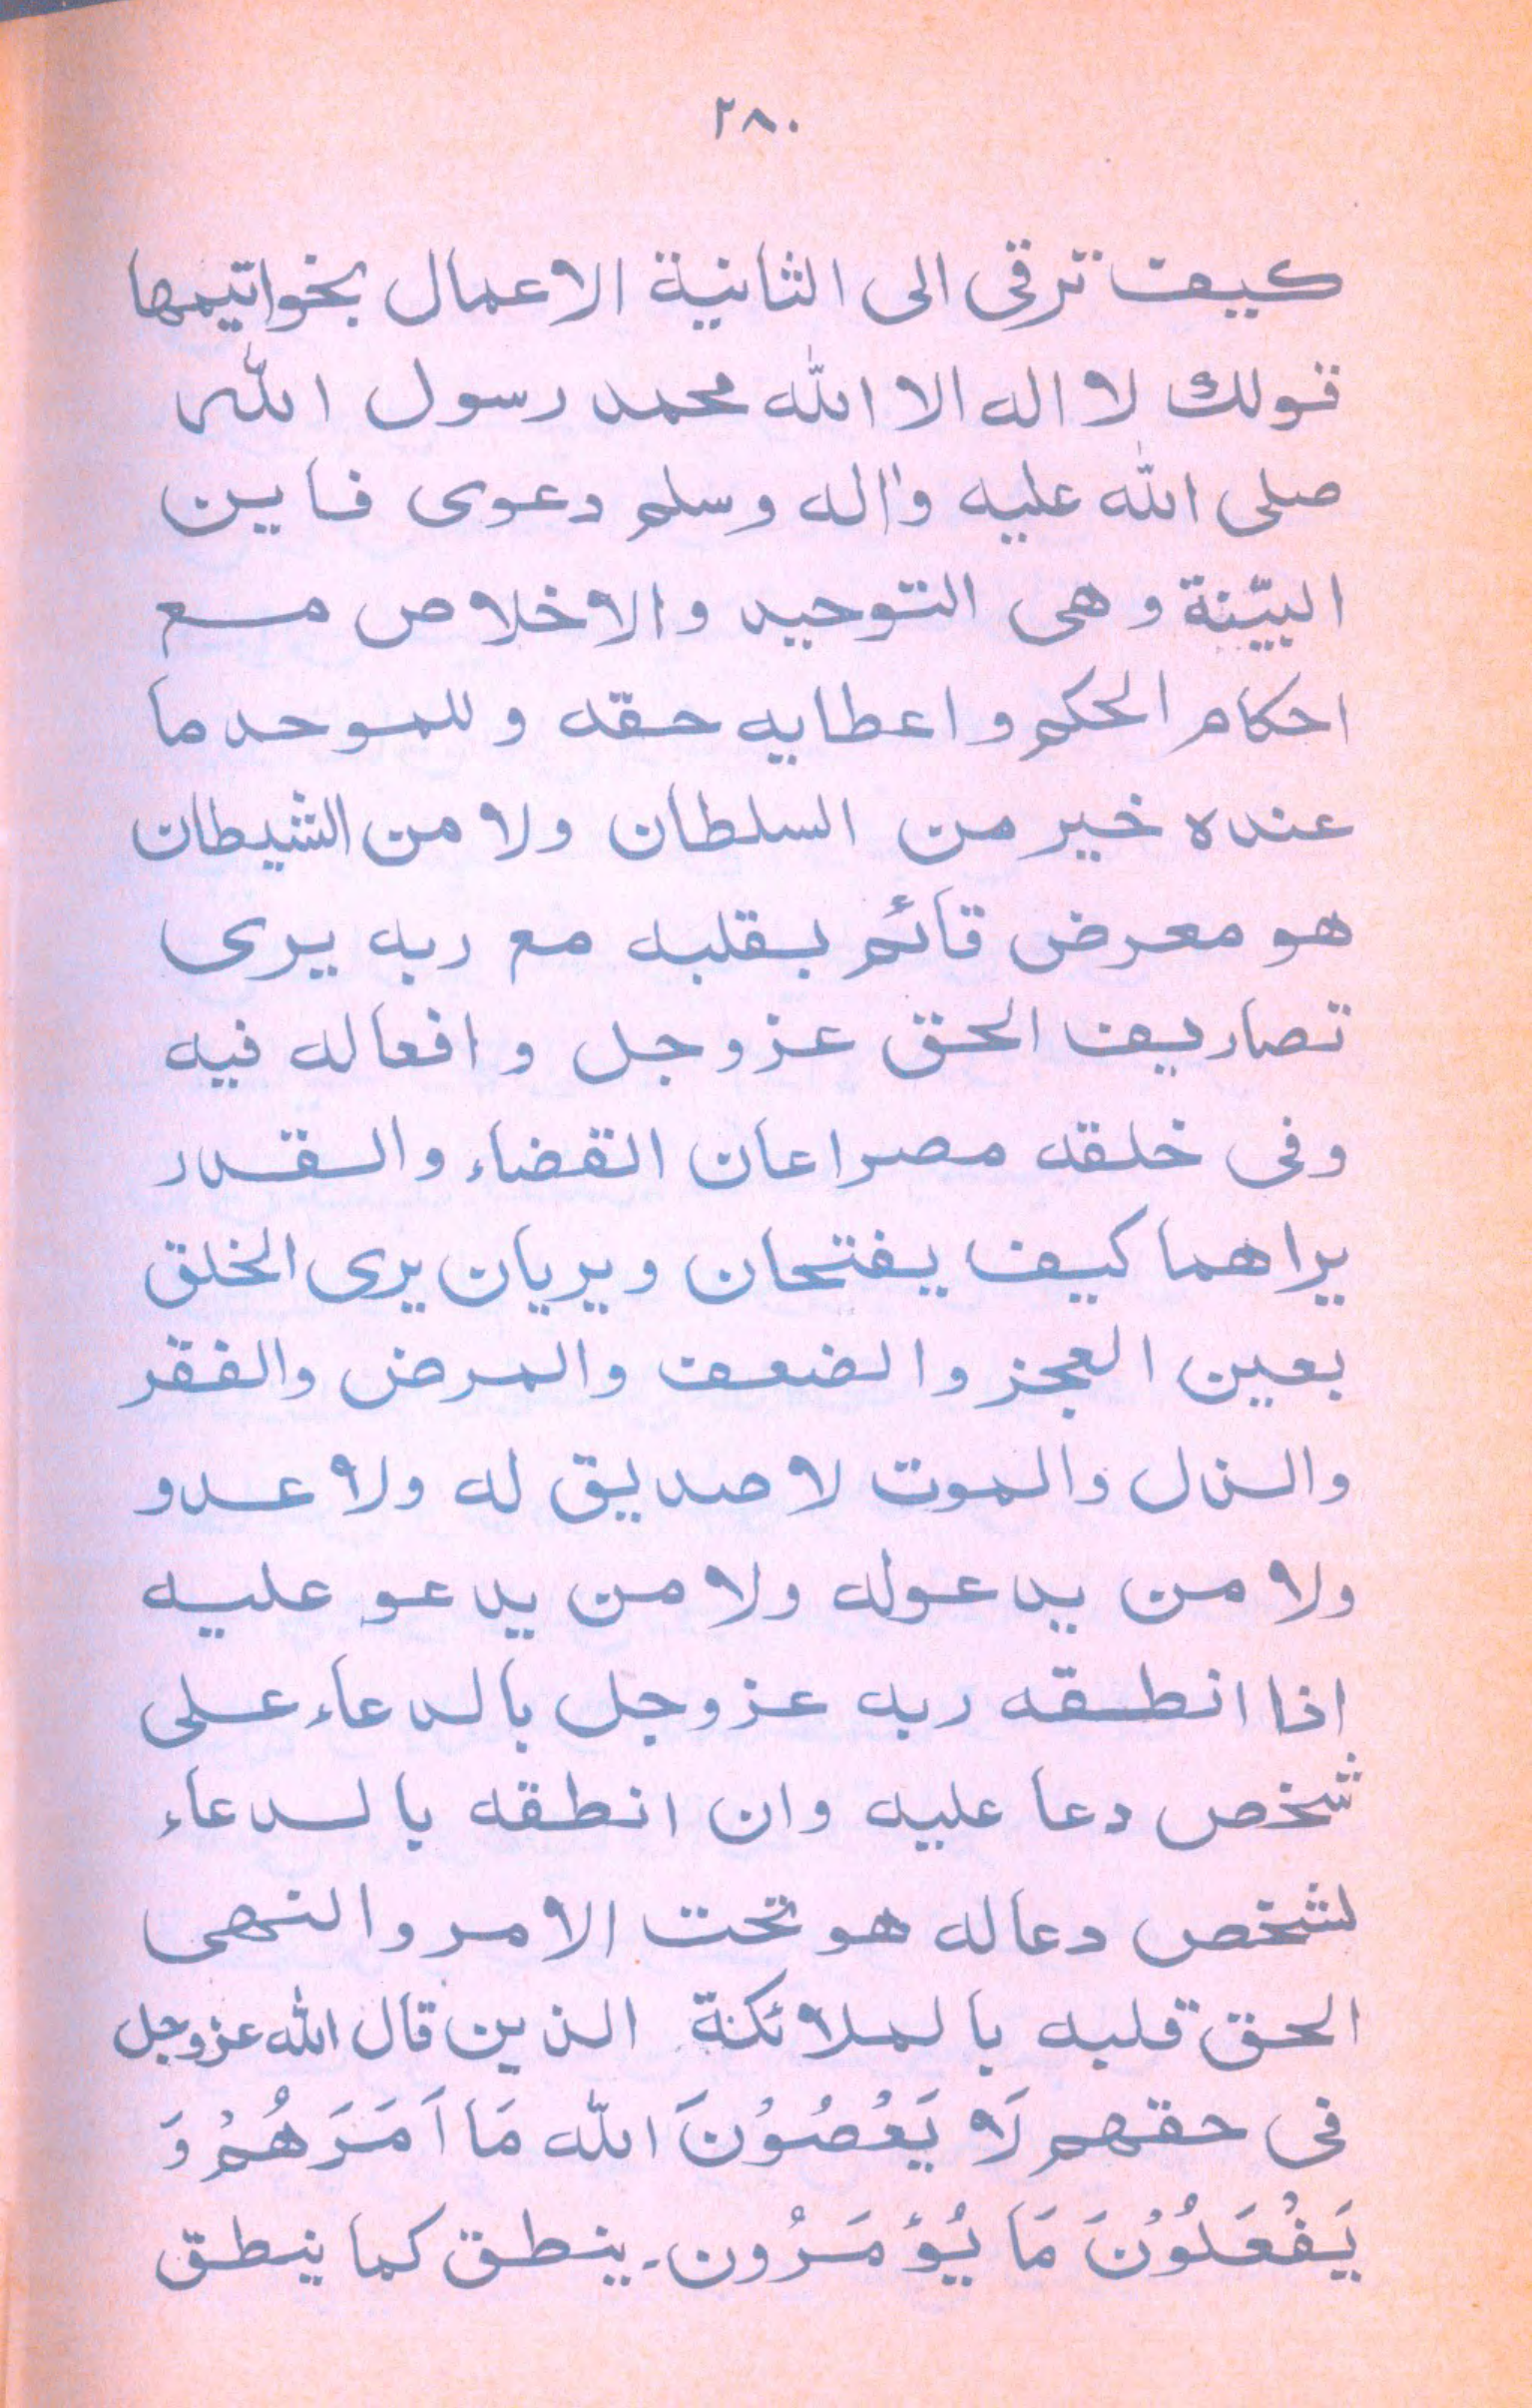 ٢٨٠
كيف ترقى الى الثانية الاعمال بخواتيمها
قولك لا اله الا الله محمد رسول الله
صلى الله عليه واٰله وسلم دعوى فاين
البيّنة وهى التوحيد والاخلاص مع
احكام الحكم واعطايه حقه وللموحد ما
عنده خير من السلطان ولا من الشيطان
هو معرض قائم بقلبه مع ربه يرى
تصاريف الحق عز وجل وافعاله فيه
وفى خلقه مصراعان القضاء والقدر
يراهما كيف يفتحان ويريان يرى الخلق
بعين العجز والضعف والمرض والفقر
والذل والموت لا صديق له ولا عدو
ولا من يدعوله ولا من يدعو عليه
اذا انطقه ربه عز وجل بالدعاء على
شخص دعا عليه وان انطقه بالدعاء
لشخص دعا له هو تحت الامر والنهى
الحق قلبه بالملائكة الذين قال الله عز وجل
فى حقهم لَا يَعْصُوْنَ الله مَا اَمَرَهُمْ وَ
يَفْعَلُوْنَ مَا يُؤْمَرُون۔ ينطق كما ينطق